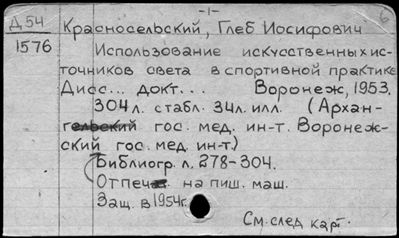 -1-
Д 54 Красносельский, Глеб Иосифович 6
1576 Использование искусственных ис-
точников света в спортивной практике
Дисс... докт... Воронеж, 1953,
304 л. с табл. 34 л. илл. (Архан-
гельский гос. мед. ин-т. Воронеж-
ский гос. мед. ин-т.)
Библиогр. л. 278-304.
Отпеч. на пиш. маш.
Защ. в 1954г.
См. след карт.